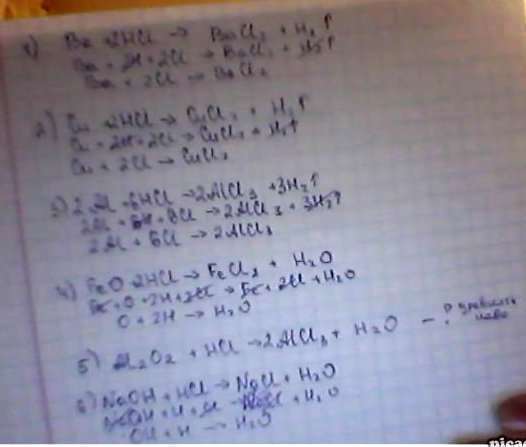 1) Ba + 2HCl → BaCl₂ + H₂↑
Ba + 2H + 2Cl → BaCl₂ + H₂↑
Ba + 2Cl → BaCl₂
2) Cu + 2HCl → CuCl₂ + H₂↑
Cu + 2H + 2Cl → CuCl₂ + H₂↑
Cu + 2Cl → CuCl₂
3) 2Al + 6HCl → 2AlCl₃ + 3H₂↑
2Al + 6H + 6Cl → 2AlCl₃ + 3H₂↑
2Al + 6Cl → 2AlCl₃
4) FeO + 2HCl → FeCl₂ + H₂O
Fe + O + 2H + 2Cl → Fe + 2Cl + H₂O
O + 2H → H₂O
5) Al₂O₂ + HCl → 2AlCl₃ + H₂O — ?
6) NaOH + HCl → NaCl + H₂O
OH + H + Cl → + H₂O
OH + H → H₂O